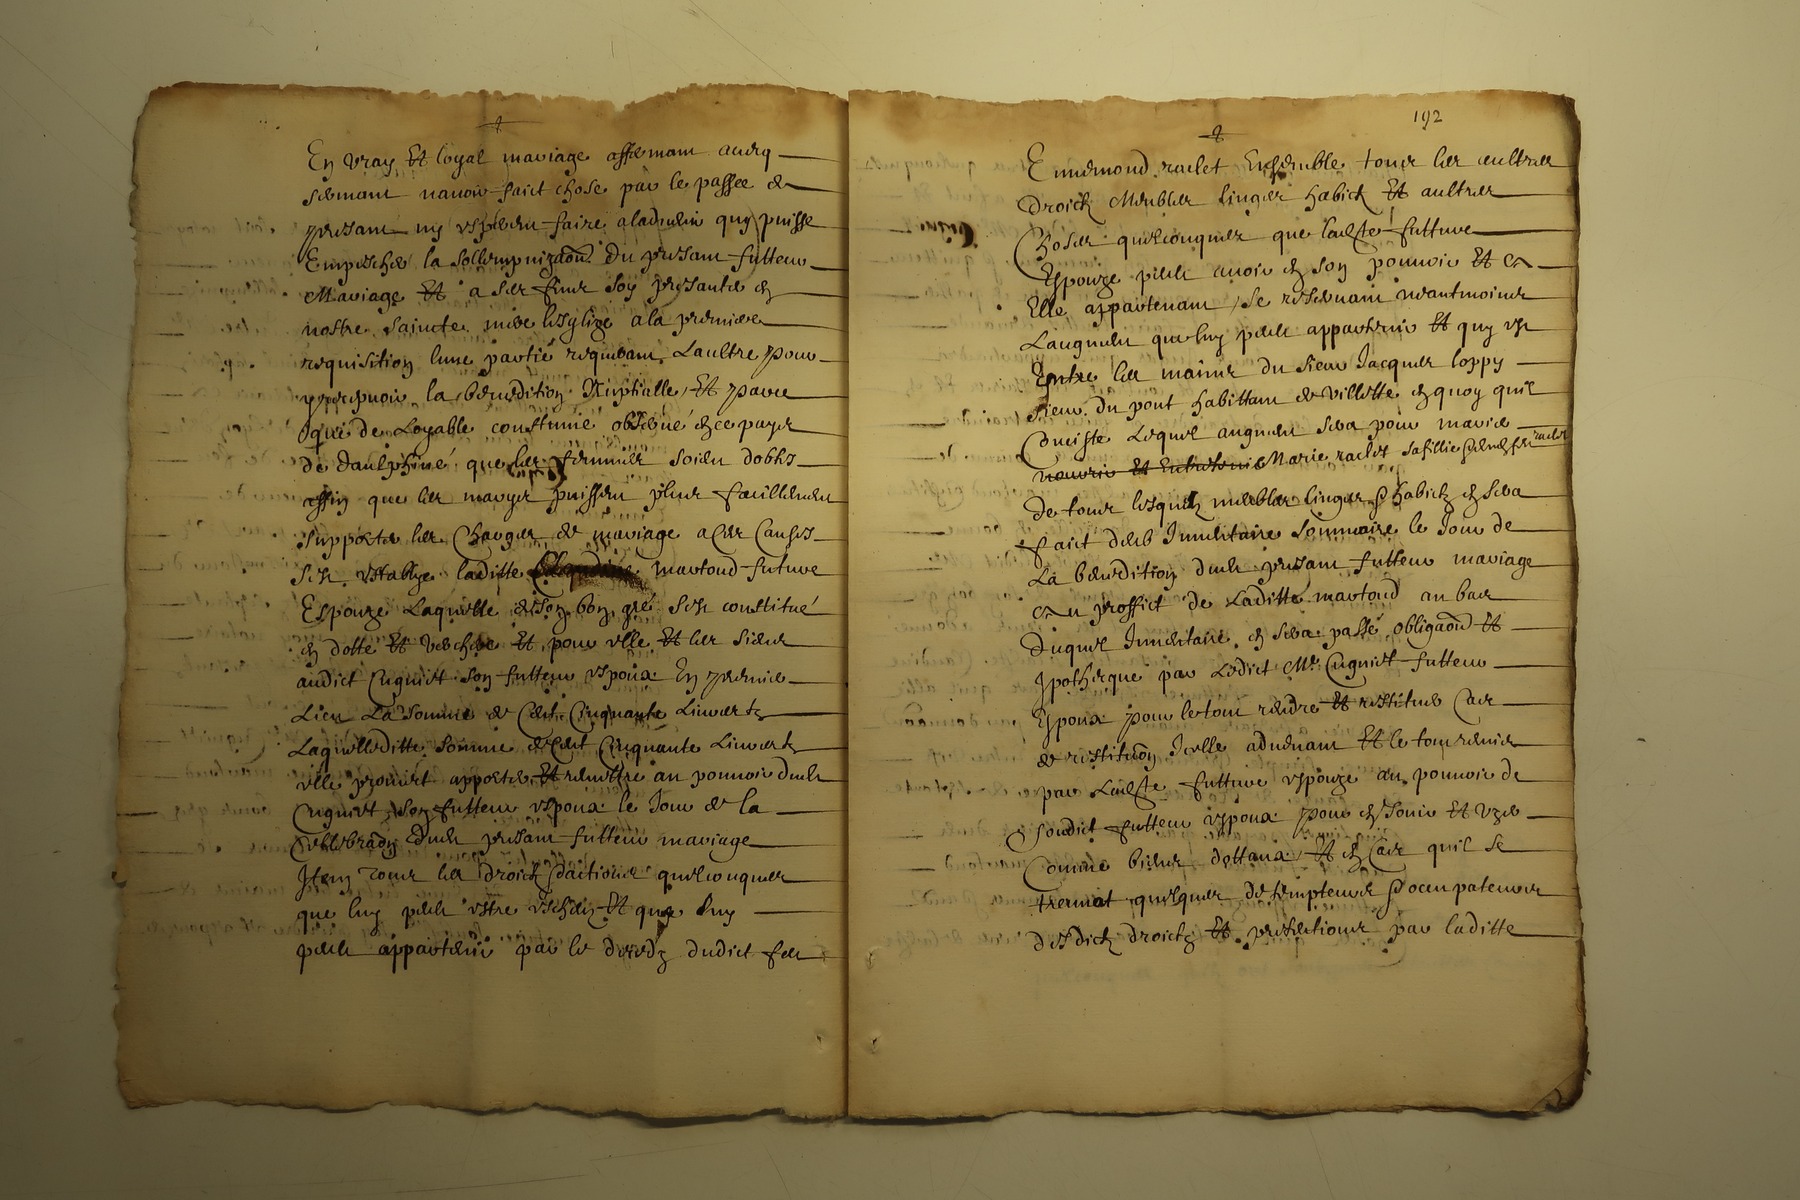 En vray Et loyal mariage afferman avecq
serment navoir faict chose par le passee de
presant ny espeeren faire aladvenir quy puisse
Empescher la sollempnizaon du presant futteur
Mariage Et a ses fins soy presanter en
nostre saincte mere lesglize a la premiere
requisition lune partie requerant Laultre pour
percepvoir la benedition Nuptialle, Et parce
que de Loyable coustume observé en ce pays
de daulphiné que les femmes soien dobtes
affin que les marys puissen plus facillemen
supporter les Charges de mariage a ces Causes
sest estably laditte martoud future
Espouze Laquelle de son bon gré sest constitué
en dotte Et verchere Et pour elle Et les siens
audict Cugniet son futteur espoux En premier
Lieu La somme de Cent Cinquante Livres
Laquelleditte somme de Cent Cinquante Livres
elle promet apporter Et remettre au pouvoir dudt
Cugniet son futteur espoux le Jour de la
Cellebraon dudt presant futteur mariage
Item tous les droictz dactions quelconques
que luy peult estre escheu Et que luy
peult appartenir par le deced dudict feu
192
Ennemond raclet Ensemble tous les aultres
droictz Meubles linges habitz Et aultres
Choses quelconques que laditte futture
Espouze peult avoir en son pouvoir Et a
Elle appartenant, se reservant neantmoins
Laugmen que luy peult appartenir Et quy est
Entre les mains du sieur Jacques loppy
sieur du pont habittant de villette en quoy quil
Conciste Lequel augmen sera pour marier
nourrir Et Entretenir Marie raclet sa fillie raclet
de tous lesquelz meubles linges habitz en sera
faict Inventaire sommaire le Jour de
La benedition dudt presant futteur mariage
au proffict de Laditte martoud au bas
duquel Inventaire en sera passé obligaon Et
Ipotheque par Ledict Me Cugniet futteur
Espoux pour le tout rendre Et restituer Cas
de restituon Icelle advenant Et le tout remis
par Laditte futture espouze au pouvoir de
soudict futteur espoux pour en Jouir Et uzer
Comme biens dottaux, Et en Cas quil se
treuvat quelques detempteurs occupateurs
desdictz droictz Et pretentions par laditte